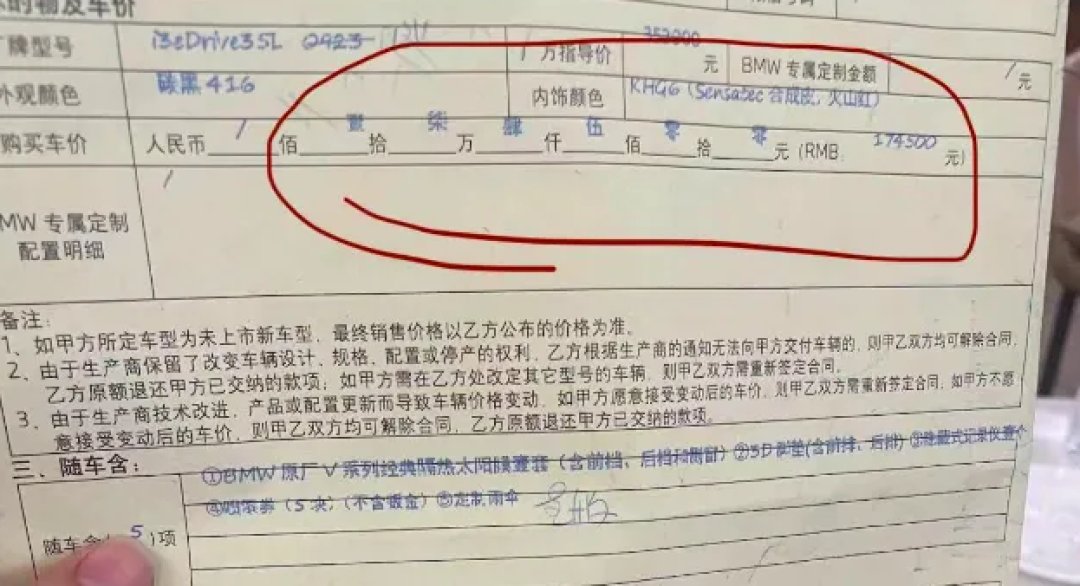 的物及车价
牌型号 i3eDrive35L 0423 方指导价 353900 元 BMW 专属定制金额 / 元
外观颜色 碳黑416 内饰颜色 KHGG(Sensatec 合成皮,火山红)
购买车价 人民币 / 佰 壹 拾 柒 万 肆 仟 伍 佰 零 拾 零 元 (RMB 174500 元)
MW 专属定制 /
配置明细
备注:
1、如甲方所定车型为未上市新车型,最终销售价格以乙方公布的价格为准。
2、由于生产商保留了改变车辆设计、规格、配置或停产的权利,乙方根据生产商的通知无法向甲方交付车辆的,则甲乙双方均可解除合同,
乙方原额退还甲方已交纳的款项;如甲方需在乙方处改定其它型号的车辆,则甲乙双方需重新签定合同。
3、由于生产商技术改进,产品或配置更新而导致车辆价格变动,如甲方愿意接受变动后的车价,则甲乙双方需重新签定合同,如甲方不愿
意接受变动后的车价,则甲乙双方均可解除合同,乙方原额退还甲方已交纳的款项。
三、随车含:
①BMW原厂V系列经典隔热太阳膜壹套(含前档、后档和侧窗)②5D脚垫(含前排、后排)③隐藏式记录仪壹个
④喷漆券(5块)(不含钣金)⑤定制雨伞
随车含(5)项